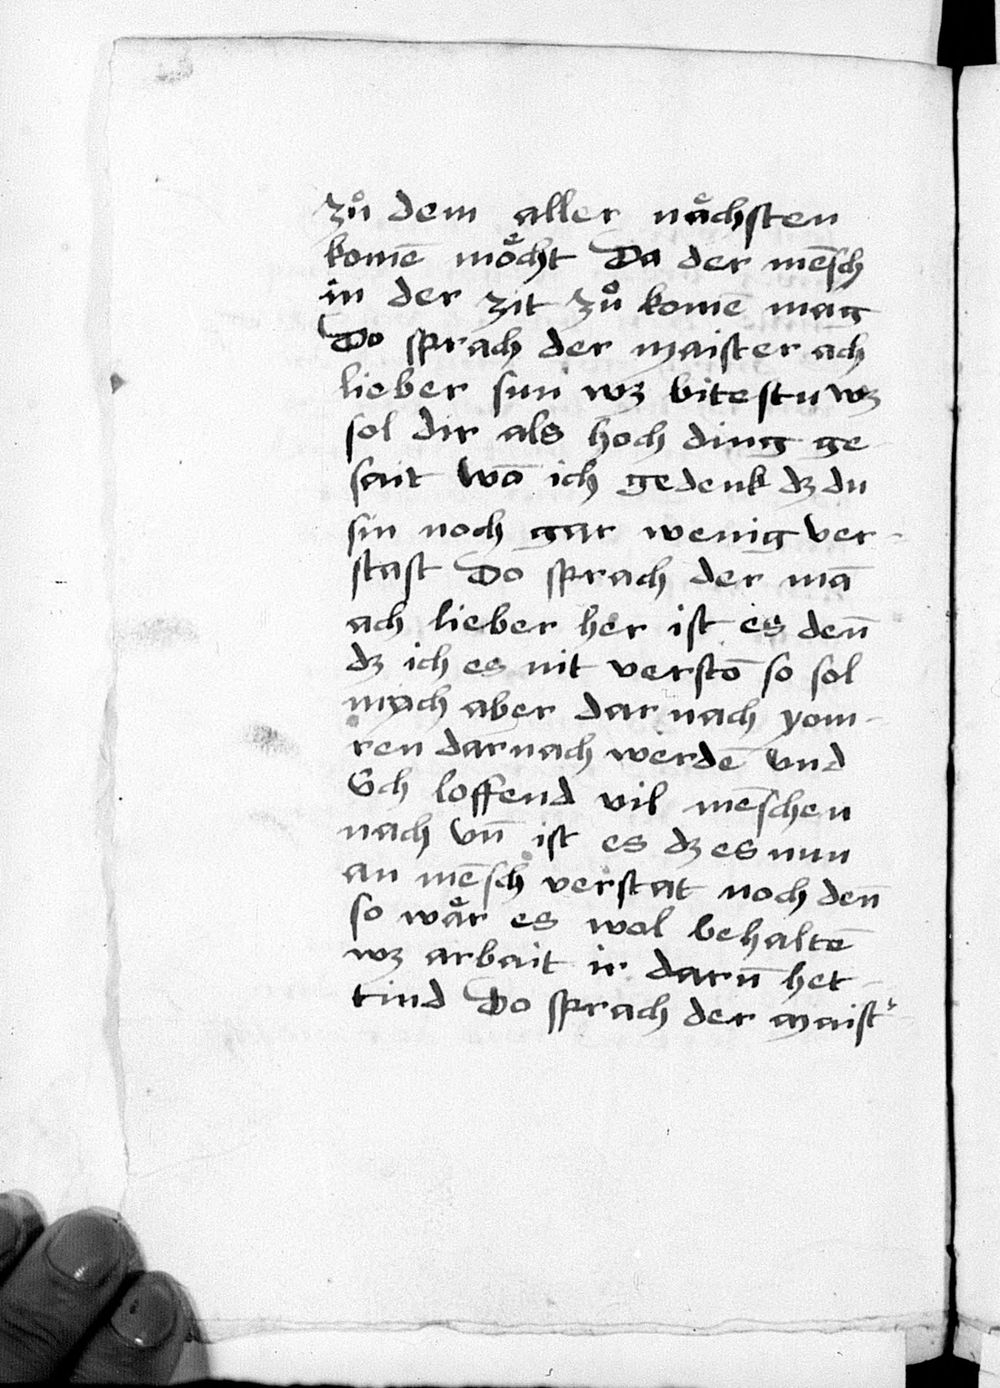 zuͦ dem aller naͤchsten
komē moͤcht Da der mēsch
in der zit zuͦ komē mag
Do sprach der maister ach
lieber sun wz bitestu wz
sol dir als hoch ding ge
sait wā ich gedenk dz du
sin noch gar wenig ver-
stast Do sprach der mā
ach lieber her ist es deñ
dz ich es nit verstō so sol
mich aber dar nach yom-
ren darnach werdē vnd
Och loffend vil mēschen
nach vn̄ ist es dz es nun
an mēsch verstat noch deñ
so waͤr es wol behaltē
wz arbait ir darū het-
tind Do sprach der maist'